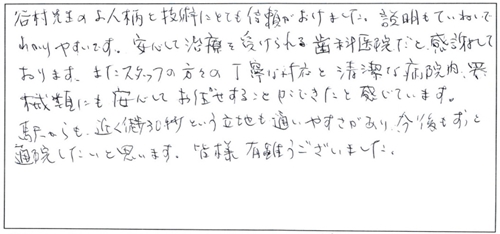 谷村先生のお人柄と技術にとても信頼がおけました。説明もていねいで
わかりやすいです。安心して治療を受けられる歯科医院だと感謝して
おります。またスタッフの方々の丁寧な対応と清潔な病院内、器
械類にも安心してお任せすることができたと感じています。
駅からも近く徒歩30秒という立地も通いやすさがあり、今後もずっと
通院したいと思います。皆様有難うございました。